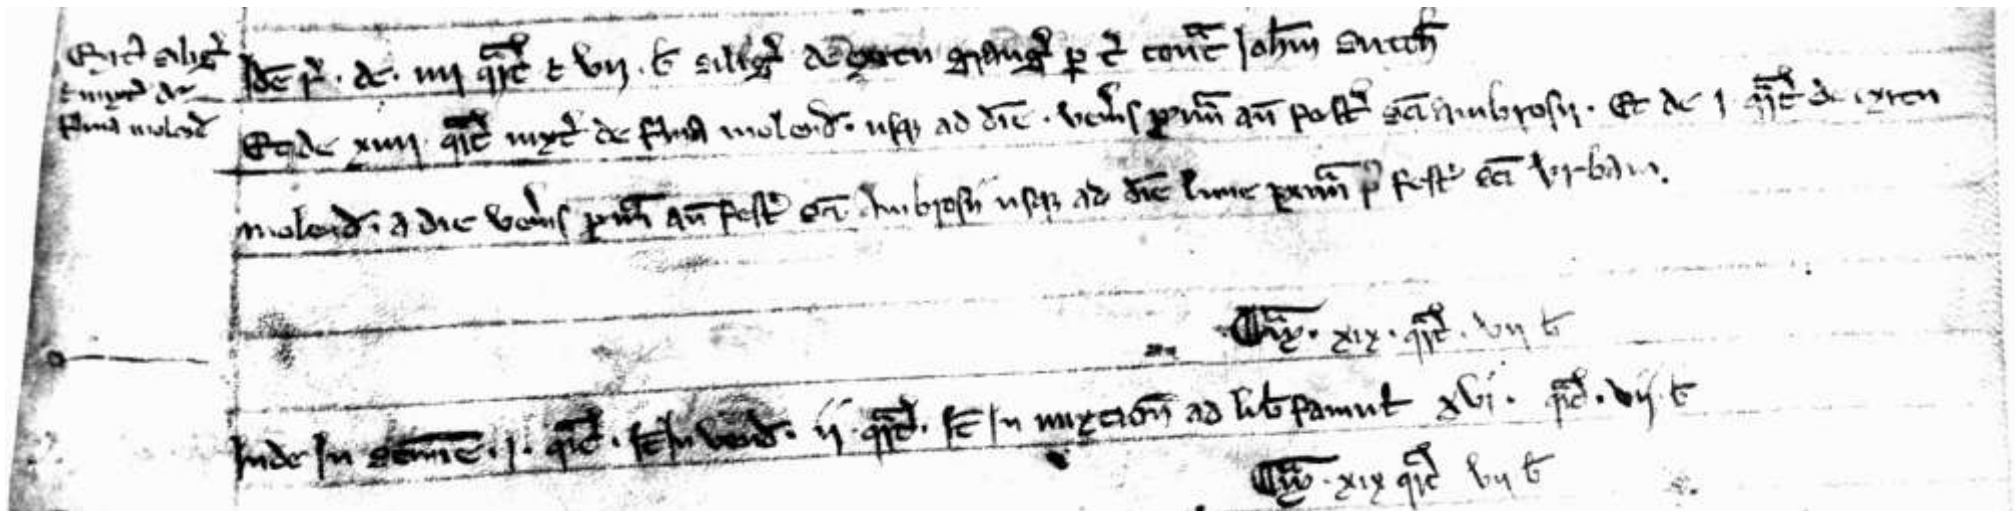 Exit' silig'
& mixt' de
firma molend'
Idē r' . de . iiij qᵃrt' & vij . b' silig' de exitu grang' p̱ t' cont' Joh'm
Et de xiiij qᵃrt' mixt' de firma molend' . usq; ad diē . ven'is p̱xim̄ an̄ fest' sc̄i Ambrosij . Et de j qᵃrt' de exitu
molend' . a die ven'is p̱xim̄ an̄ fest' sc̄i Ambrosij usq; ad diē lune p̱xim̄ p' fest' sc̄i Urbani .
Sm̄ᵃ . xix . qᵃrt' . vij b'
Inde In semīe . j . qᵃrt' . It̄ In vend' . ij . qᵃrt' . It̄ In mixtion̄ ad lib' famul' xvj . qᵃrt' . vij . b'
Sm̄ᵃ . xix qᵃrt' vij b'